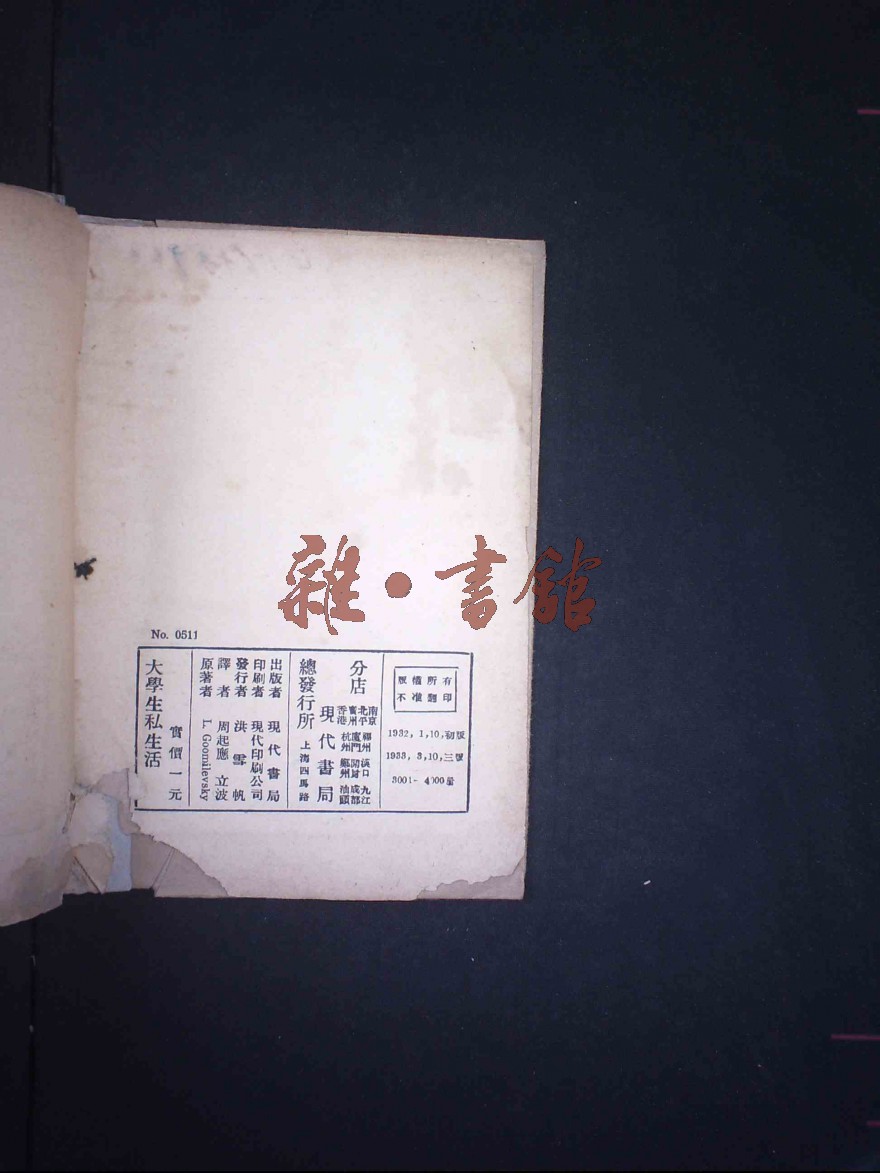 雜·書館
No. 0511
版權所有
不准翻印
1932, 1, 10, 初版
1933, 3, 10, 三版
3001—4000册
分店
南京 福州 漢口 九江
北平 廈門 開封 成都
廣州
香港 杭州 鄭州 汕頭
總發行所 現代書局
上海四馬路
出版者 現代書局
印刷者 現代印刷公司
發行者 洪雪帆
譯者 周起應 立波
原著者 I. Goomilevsky
實價一元
大學生私生活